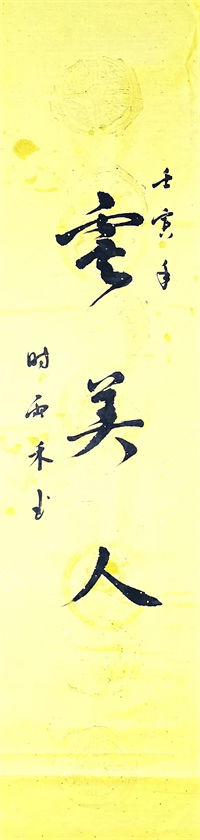 壬寅年
雲美人
时雨禾